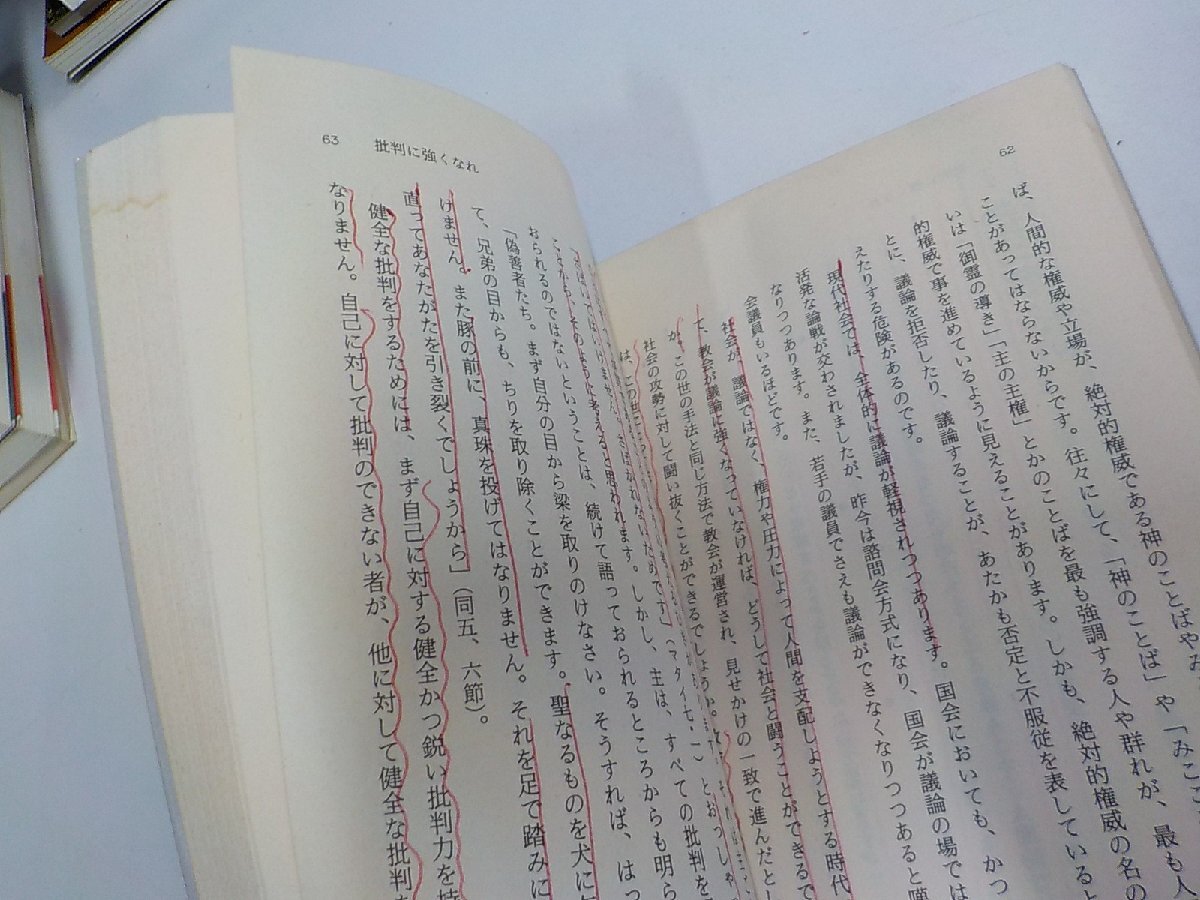 62
ば、人間的な権威や立場が、絶対的権威である神のことばやみ
ことがあってはならないからです。往々にして、「神のことば」や「みこ
いは「御霊の導き」「主の主権」とかのことばを最も強調する人や群れが、最も人
的権威で事を進めているように見えることがあります。しかも、絶対的権威の名の
とに、議論を拒否したり、議論することが、あたかも否定と不服従を表していると
えたりする危険があるのです。
現代社会では、全体的に議論が軽視されつつあります。国会においても、かつ
活発な論戦が交わされましたが、昨今は諮問会方式になり、国会が議論の場では
なりつつあります。また、若手の議員でさえも議論ができなくなりつつあると嘆
会議員もいるほどです。
社会が、議論ではなく、権力や圧力によって人間を支配しようとする時代
て、教会が議論に強くなっていなければ、どうして社会と闘うことができるで
か。この世の手法と同じ方法で教会が運営され、見せかけの一致で進んだとし
社会の攻勢に対して闘い抜くことができるでしょうか。
63 批判に強くなれ
さばかれないためです」(マタイ七・一)とおっしゃ
そのように考えると思われます。しかし、主は、すべての批判を
おられるのではないということは、続けて語っておられるところからも明ら
「偽善者たち。まず自分の目から梁を取りのけなさい。そうすれば、はっ
て、兄弟の目からも、ちりを取り除くことができます。聖なるものを犬に
けません。また豚の前に、真珠を投げてはなりません。それを足で踏みに
直ってあなたがたを引き裂くでしょうから」(同五、六節)。
健全な批判をするためには、まず自己に対する健全かつ鋭い批判力を
なりません。自己に対して批判のできない者が、他に対して健全な批判